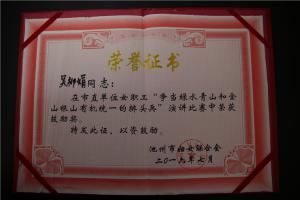 荣誉证书
吴柳娟同志：
在市直单位女职工“争当绿水青山和金
山银山有机统一的排头兵”演讲比赛中荣获
鼓励奖。
特发此证，以资鼓励。
池州市妇女联合会
二〇一八年七月